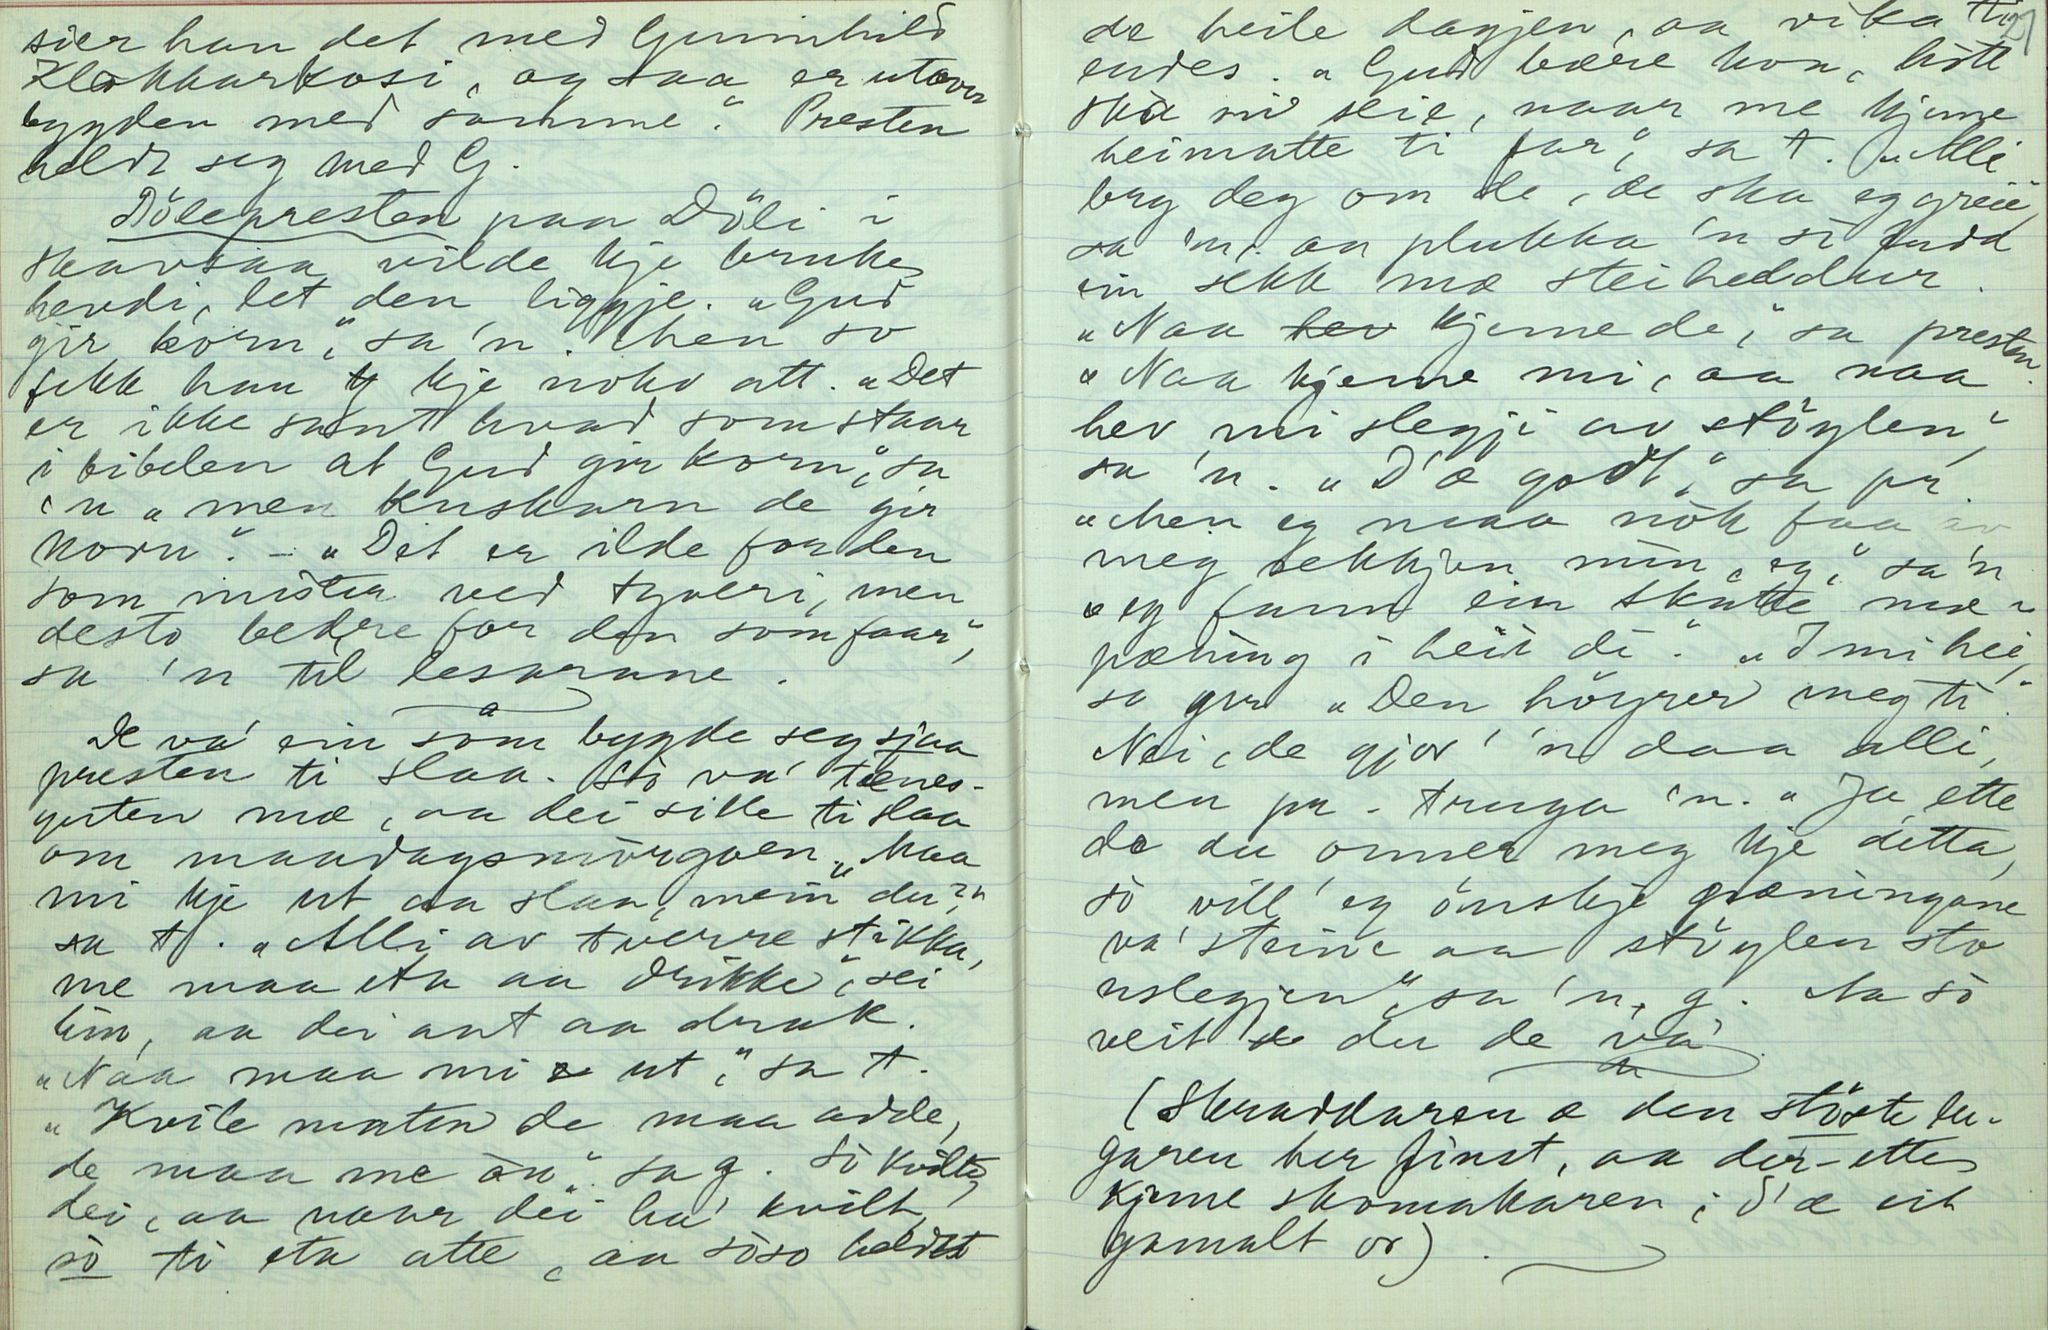 sier han det med Gunnhild
Klokkarkosi, og saa er utover
bygden med samme." Presten
heldt seg med G.
Döleprestenpaa Döli i
Skavsaa vilde kje bruke
hevdi, let den liggje. "Gud
gir korn," sa 'n. Men so
fekk han kje noko att. "Det
er ikke sant hvad som staar
i bibelen at Gud gir korn," sa
'n "men kuskarn de gir
korn." - "Det er ilde for den
som mista ved tyveri, men
desto bedre for den som faar",
sa 'n til lesarane.
De va' ein som bygde seg sjaa
presten ti slaa. Sò va' tænes-
guten mæ, aa dei sille ti slaa
om maadagsmòrgoen. "Maa
mi kje ut aa slaa, mein du?"
sa t. "Alli av tverre stikka,
me maa eta aa drikke", sei
hin, aa dei aat aa drak.
"Naa maa mi ut," sa t.
"Kvile maten de maa adde,
de maa me òu" sa g. Sò kvilte
dei, aa naar dei ha' kvilt,
sò ti eta atte, aa sòso heldt
27
de heile dagjen, aa vika ti
endes. "Gud bære kon, hòtt
ska mi seie, naar me kjeme
heimatte ti far", sa t. "Alli
bry deg om de, de ska eg greie,"
sa 'n. aa plukka 'n sò fudd
ein sekk mæ steiheddur.
"Naa hev kjeme de," sa presten.
"Naa kjeme mi, aa naa
hev mi slegji av stöylen",
sa 'n. "D'æ godt," sa pr.
"Men eg maa nòk faa av
meg sekkjen min, eg," sa'n
"eg fann ein skatte mæ
pæning i heii di." "I mi hei,"
sa pr. "Den höyrer meg ti."
Nei, de gjor' 'n daa alli,
men pr. truga 'n. "Ja, ette
de du onner meg kje detta,
sò vill' eg önskje pæningane
va' steine aa stöylen sto
uslegjen", sa 'n, g. Aa sò
veit du de va'.
(Skraddaren æ den störste lu-
garen her finst, aa der-ette
kjeme skomakaren; d'æ eit
gamalt or).